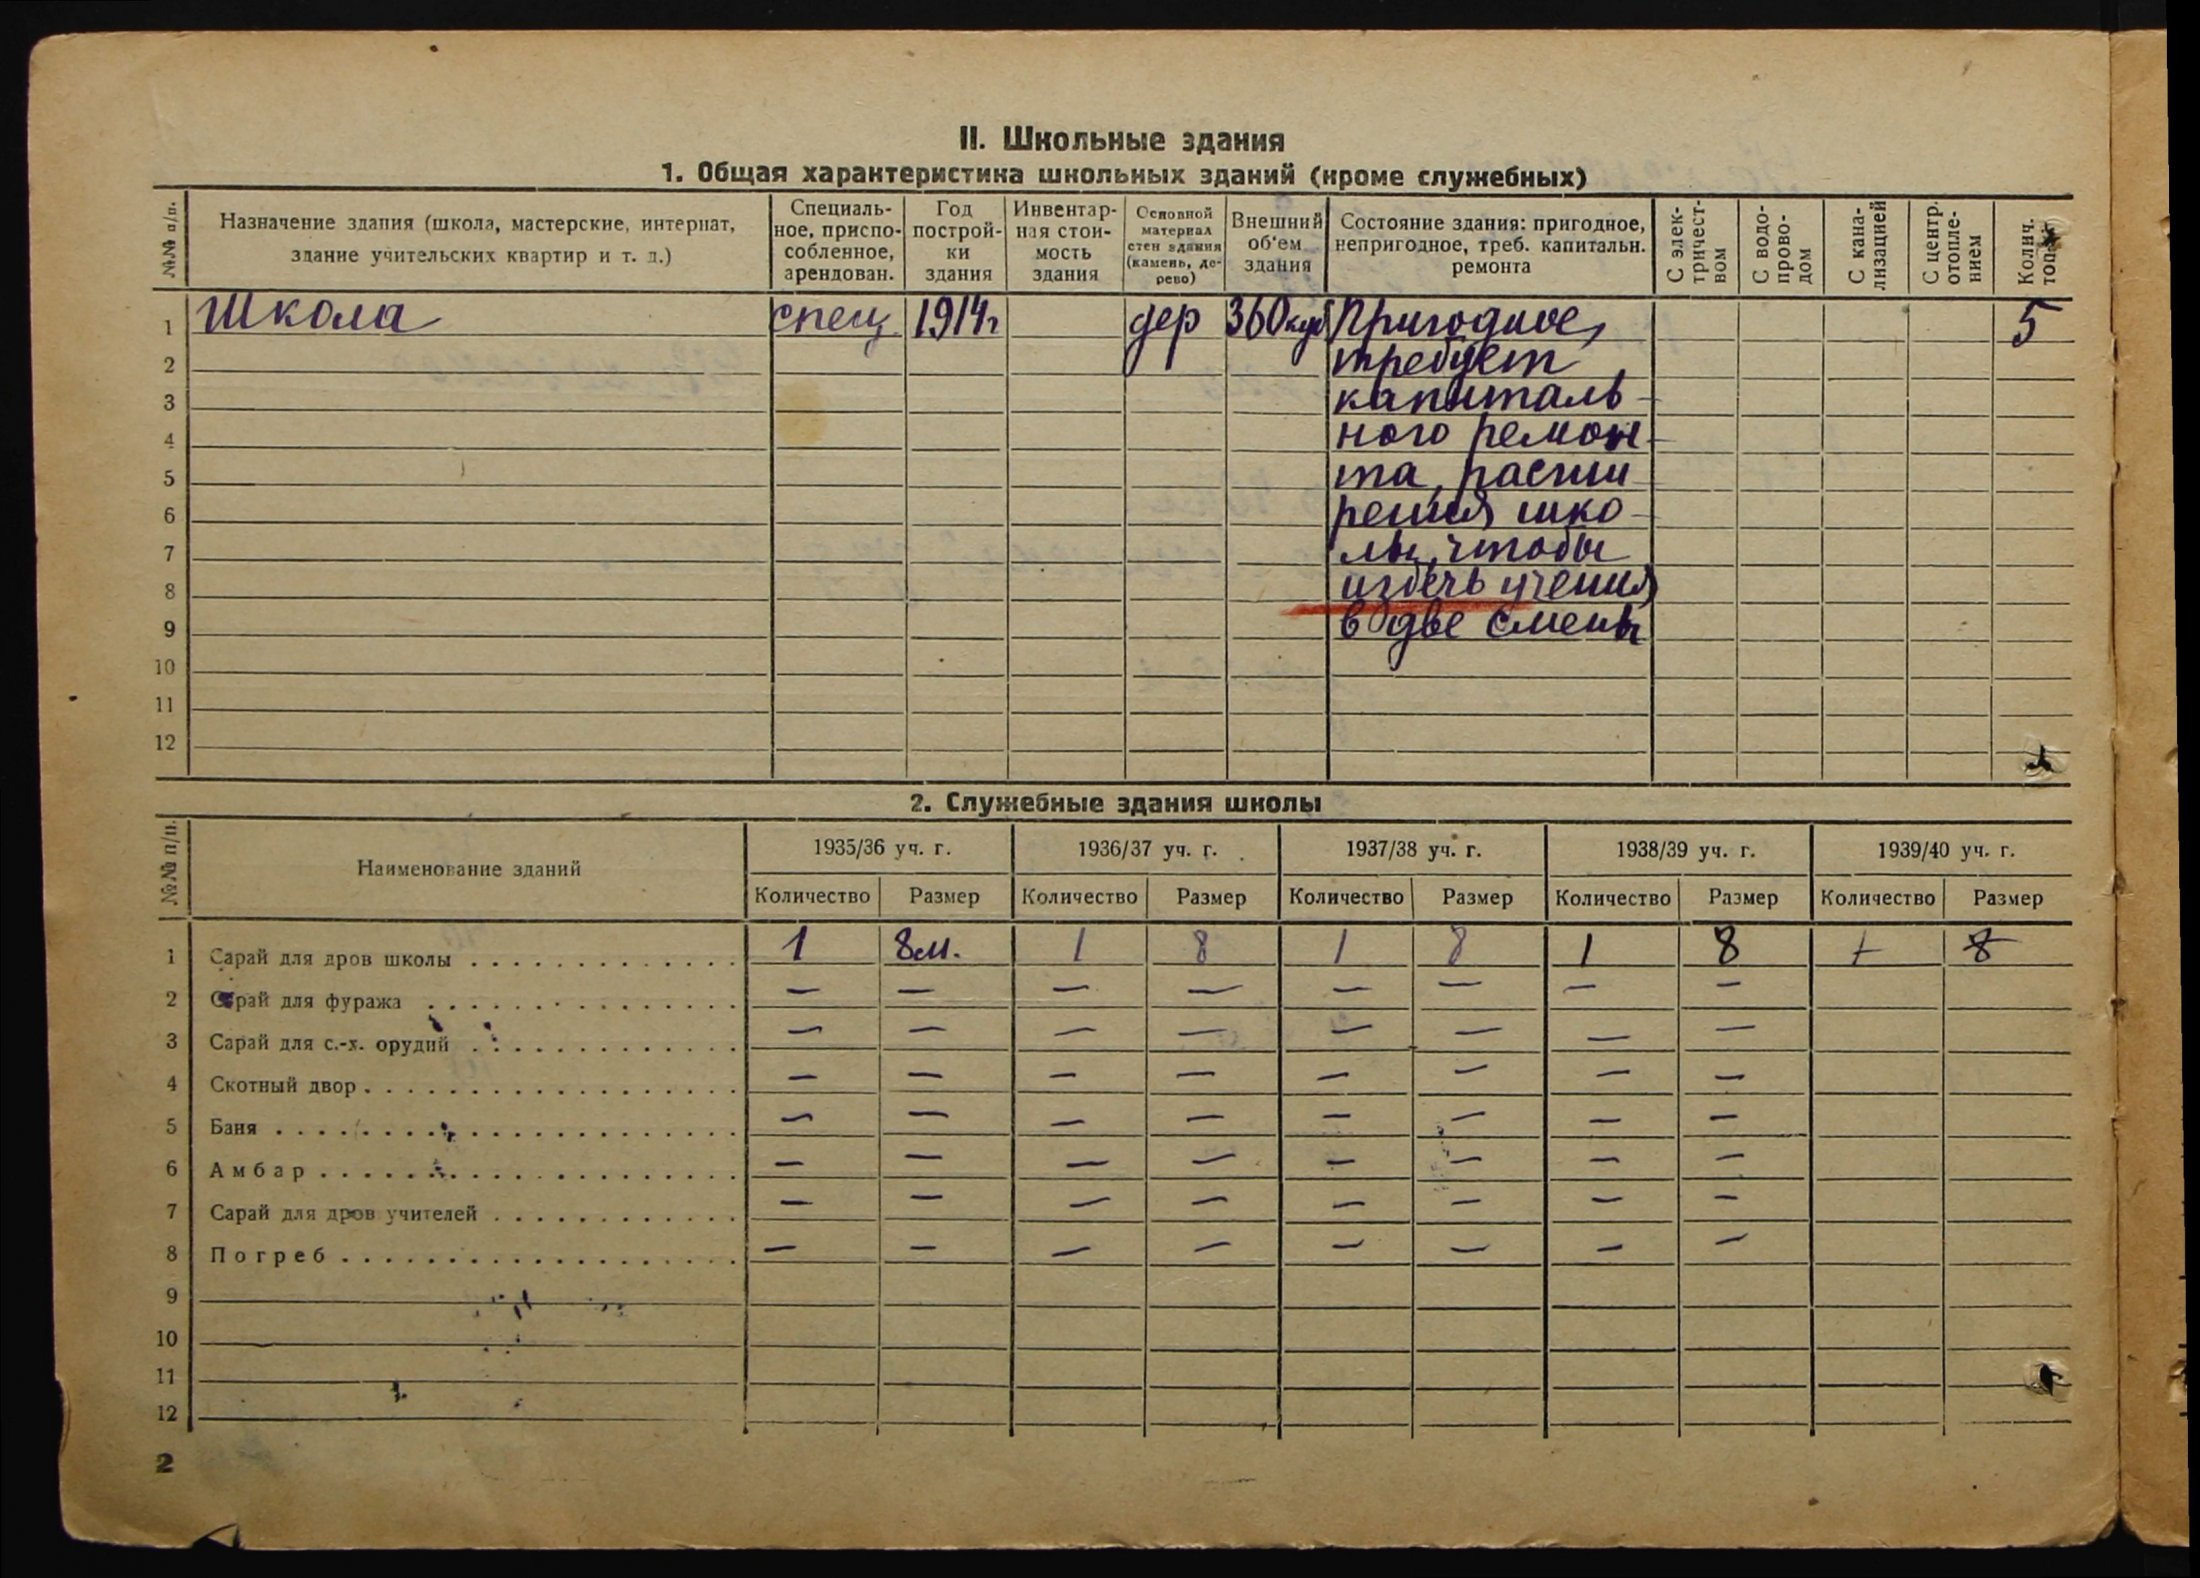 II. Школьные здания
1. Общая характеристика школьных зданий (кроме служебных)
№№ п/п.
Назначение здания (школа, мастерские, интернат,
здание учительских квартир и т. д.)
Специаль-
ное, приспо-
собленное,
арендован.
Год
построй-
ки
здания
Инвентар-
ная стои-
мость
здания
Основной
материал
стен здания
(камень, де-
рево)
Внешний
об'ем
здания
Состояние здания: пригодное,
непригодное, треб. капитальн.
ремонта
С элек-
тричест-
вом
С водо-
прово-
дом
С кана-
лизацией
С центр.
отопле-
нием
Колич.
1 Школа спец. 1914г дер 360куб Пригодное, 5
2 требует
3 капиталь-
4 ного ремон-
5 та, расши-
6 рения шко-
7 лы, чтобы
8 избечь учения
9 в две смены
10
11
12
2. Служебные здания школы
№№ п/п.
Наименование зданий
1935/36 уч. г. 1936/37 уч. г. 1937/38 уч. г. 1938/39 уч. г. 1939/40 уч. г.
Количество Размер Количество Размер Количество Размер Количество Размер Количество Размер
1 Сарай для дров школы . . . . . . . . . . . . . 1 8м. 1 8 1 8 1 8 1 8
2 Сарай для фуража . . . . . . . . . . . . . . . — — — — — — — —
3 Сарай для с.-х. орудий . . . . . . . . . . . . . — — — — — — — —
4 Скотный двор . . . . . . . . . . . . . . . . . . — — — — — — — —
5 Баня . . . . . . . . . . . . . . . . . . . . . . — — — — — — — —
6 Амбар . . . . . . . . . . . . . . . . . . . . — — — — — — — —
7 Сарай для дров учителей . . . . . . . . . . . . — — — — — — — —
8 Погреб . . . . . . . . . . . . . . . . . . . — — — — — — — —
9
10
11
12
2